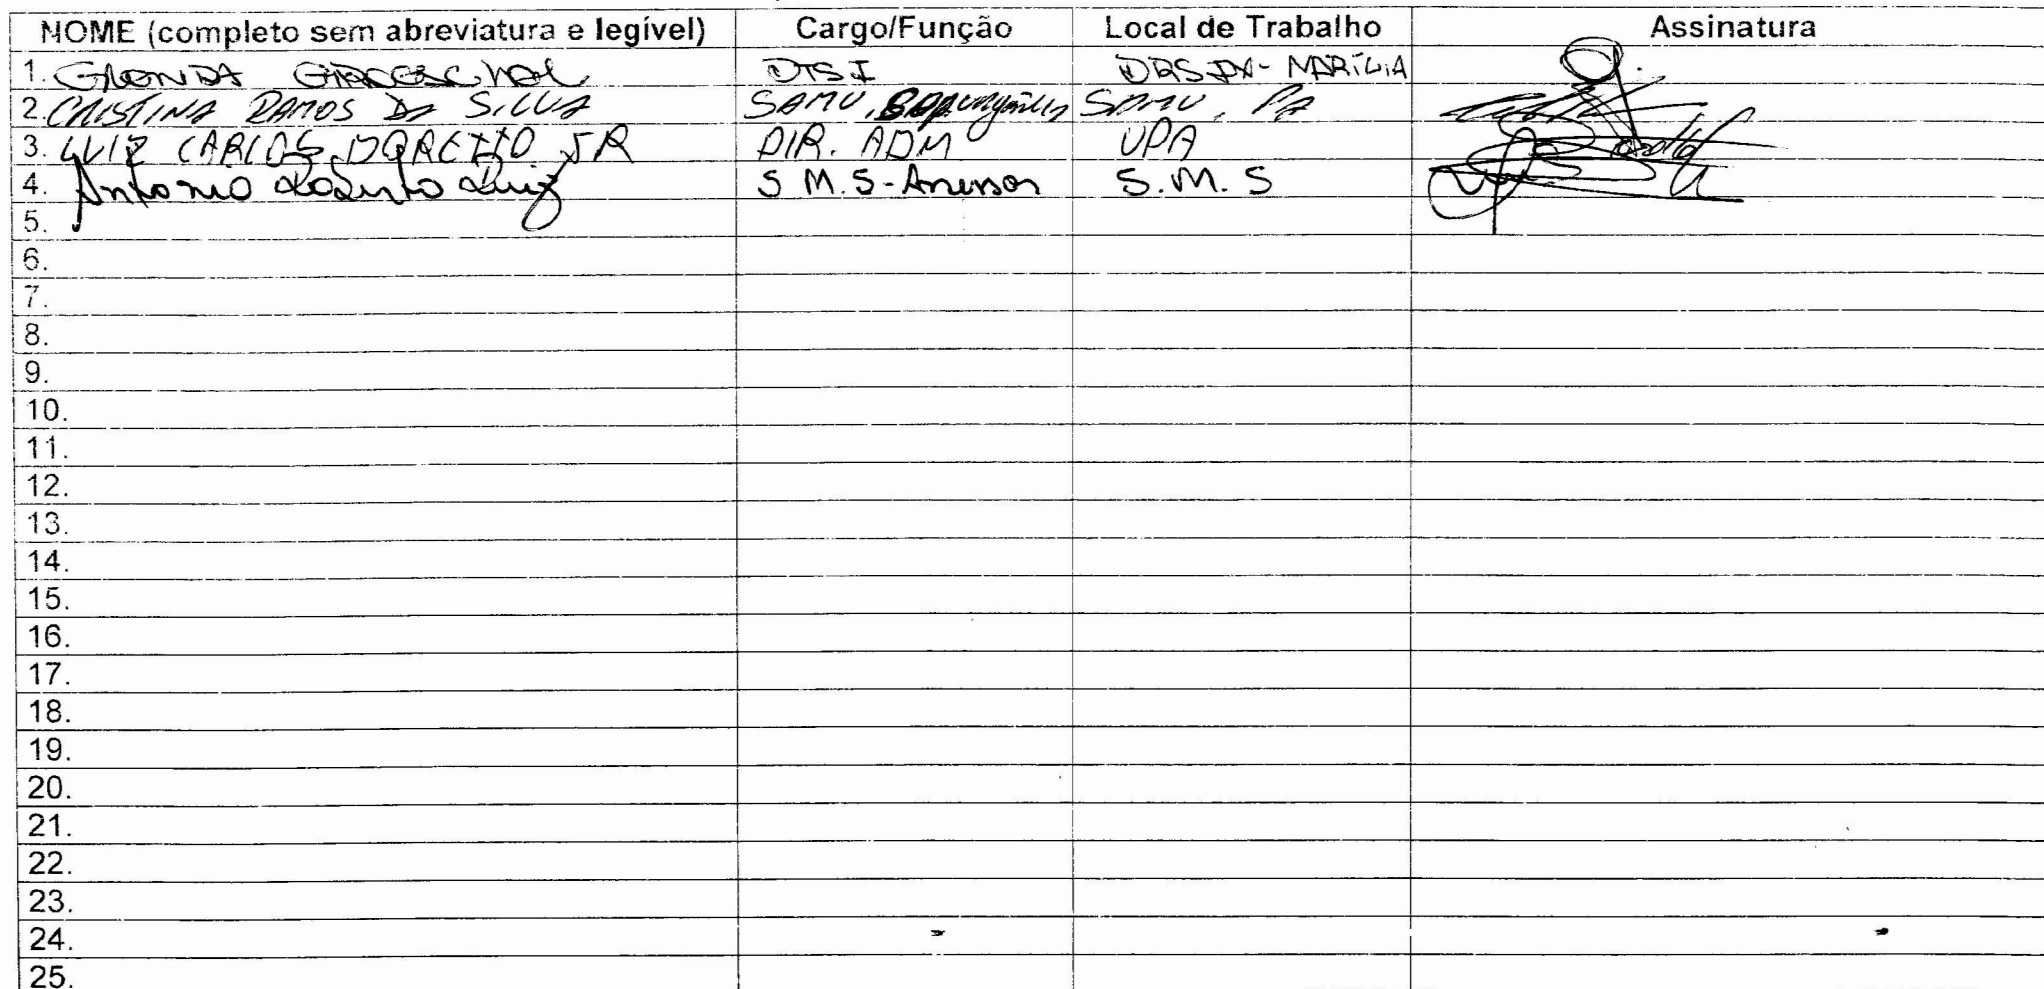 NOME (completo sem abreviatura e legível) Cargo/Função Local de Trabalho Assinatura
1. DTSI MARÍLIA
2. CRISTINA RAMOS DA SILVA SAMU, SAMU, PA
3. LUIZ CARLOS JR DIR. ADM UPA
4. Antonio Roberto Luiz S.M.S-Assessor S.M.S
5.
6.
7.
8.
9.
10.
11.
12.
13.
14.
15.
16.
17.
18.
19.
20.
21.
22.
23.
24.
25.